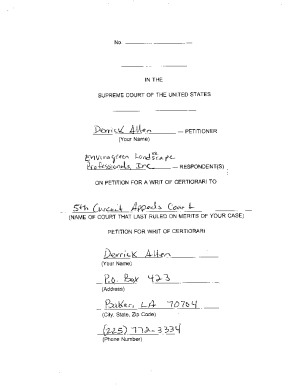 No.
IN THE
SUPREME COURT OF THE UNITED STATES
Derrick Allen — PETITIONER
(Your Name)
Envirogreen Landscape
Professionals Inc — RESPONDENT(S)
ON PETITION FOR A WRIT OF CERTIORARI TO
5th Circuit Appeals Court
(NAME OF COURT THAT LAST RULED ON MERITS OF YOUR CASE)
PETITION FOR WRIT OF CERTIORARI
Derrick Allen
(Your Name)
P.O. Box 423
(Address)
Baker, LA 70704
(City, State, Zip Code)
(225) 772-3334
(Phone Number)